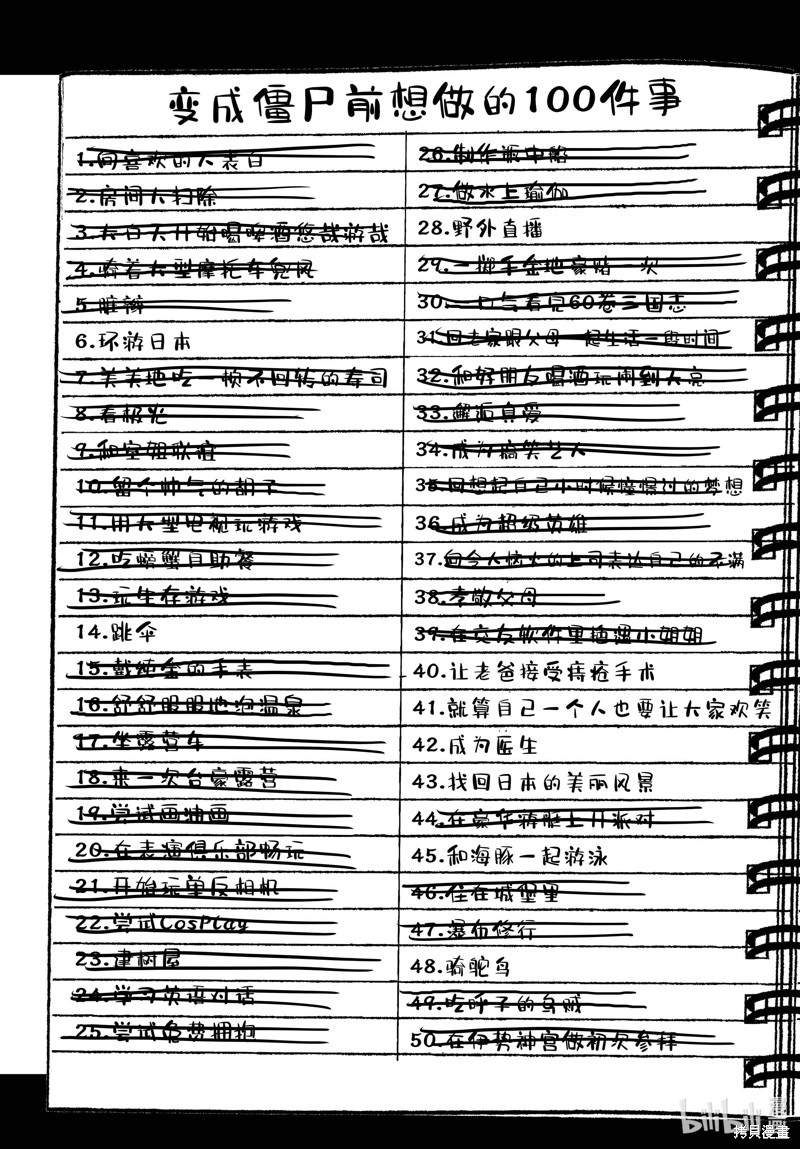 变成僵尸前想做的100件事
1.向喜欢的人表白
2.房间大扫除
3.大白天开始喝啤酒悠哉游哉
4.骑着大型摩托车兜风
5.脏辫
6.环游日本
7.美美地吃一顿不回转的寿司
8.看极光
9.和空姐联谊
10.留个帅气的胡子
11.用大型电视玩游戏
12.吃螃蟹自助餐
13.玩生存游戏
14.跳伞
15.戴纯金的手表
16.舒舒服服地泡温泉
17.坐露营车
18.来一次台豪露营
19.尝试画油画
20.在表演俱乐部畅玩
21.开始玩单反相机
22.尝试CosPlay
23.建树屋
24.学习英语对话
25.尝试免费拥抱
26.制作瓶中船
27.做水上瑜伽
28.野外直播
29.一掷千金地豪赌一次
30.一口气看完60卷三国志
31.回老家跟父母一起生活一段时间
32.和好朋友喝酒玩闹到天亮
33.邂逅真爱
34.成为搞笑艺人
35.回想起自己小时候憧憬过的梦想
36.成为超级英雄
37.向令人恼火的上司表达自己的不满
38.孝敬父母
39.在交友软件里偶遇小姐姐
40.让老爸接受痔疮手术
41.就算自己一个人也要让大家欢笑
42.成为医生
43.找回日本的美丽风景
44.在豪华游艇上开派对
45.和海豚一起游泳
46.住在城堡里
47.瀑布修行
48.骑鸵鸟
49.吃呼子的乌贼
50.在伊势神宫做初次参拜
bilibili
拷貝漫畫